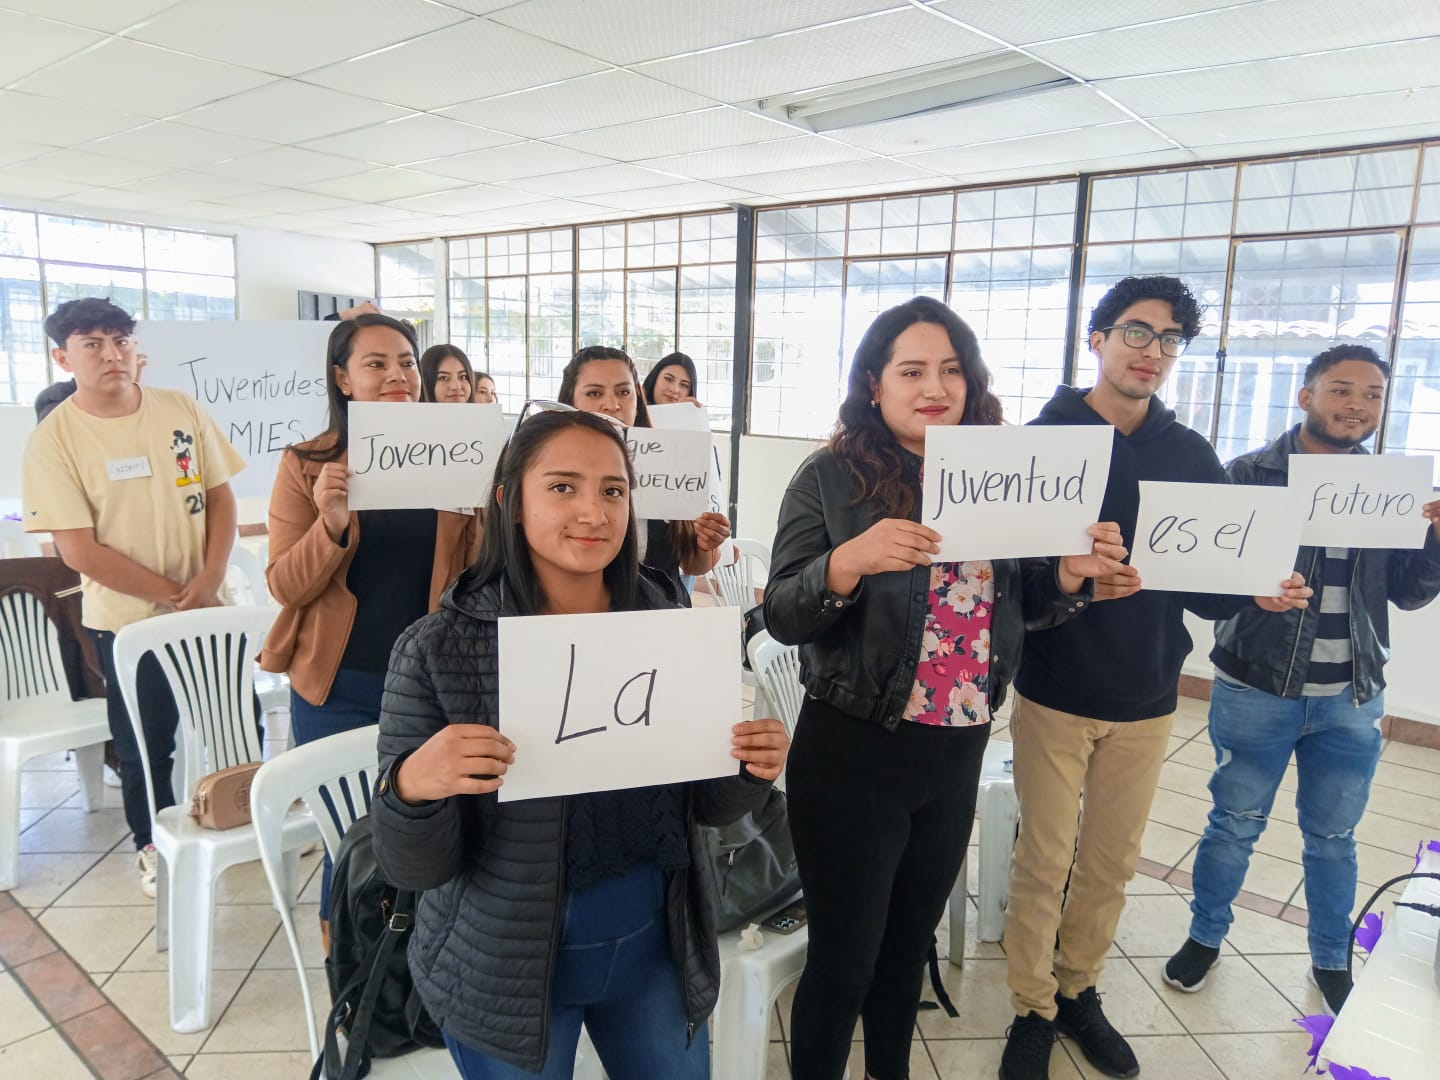 Juventudes
MIES
Gabriel
28
Jovenes
que
La
juventud
es el
Futuro